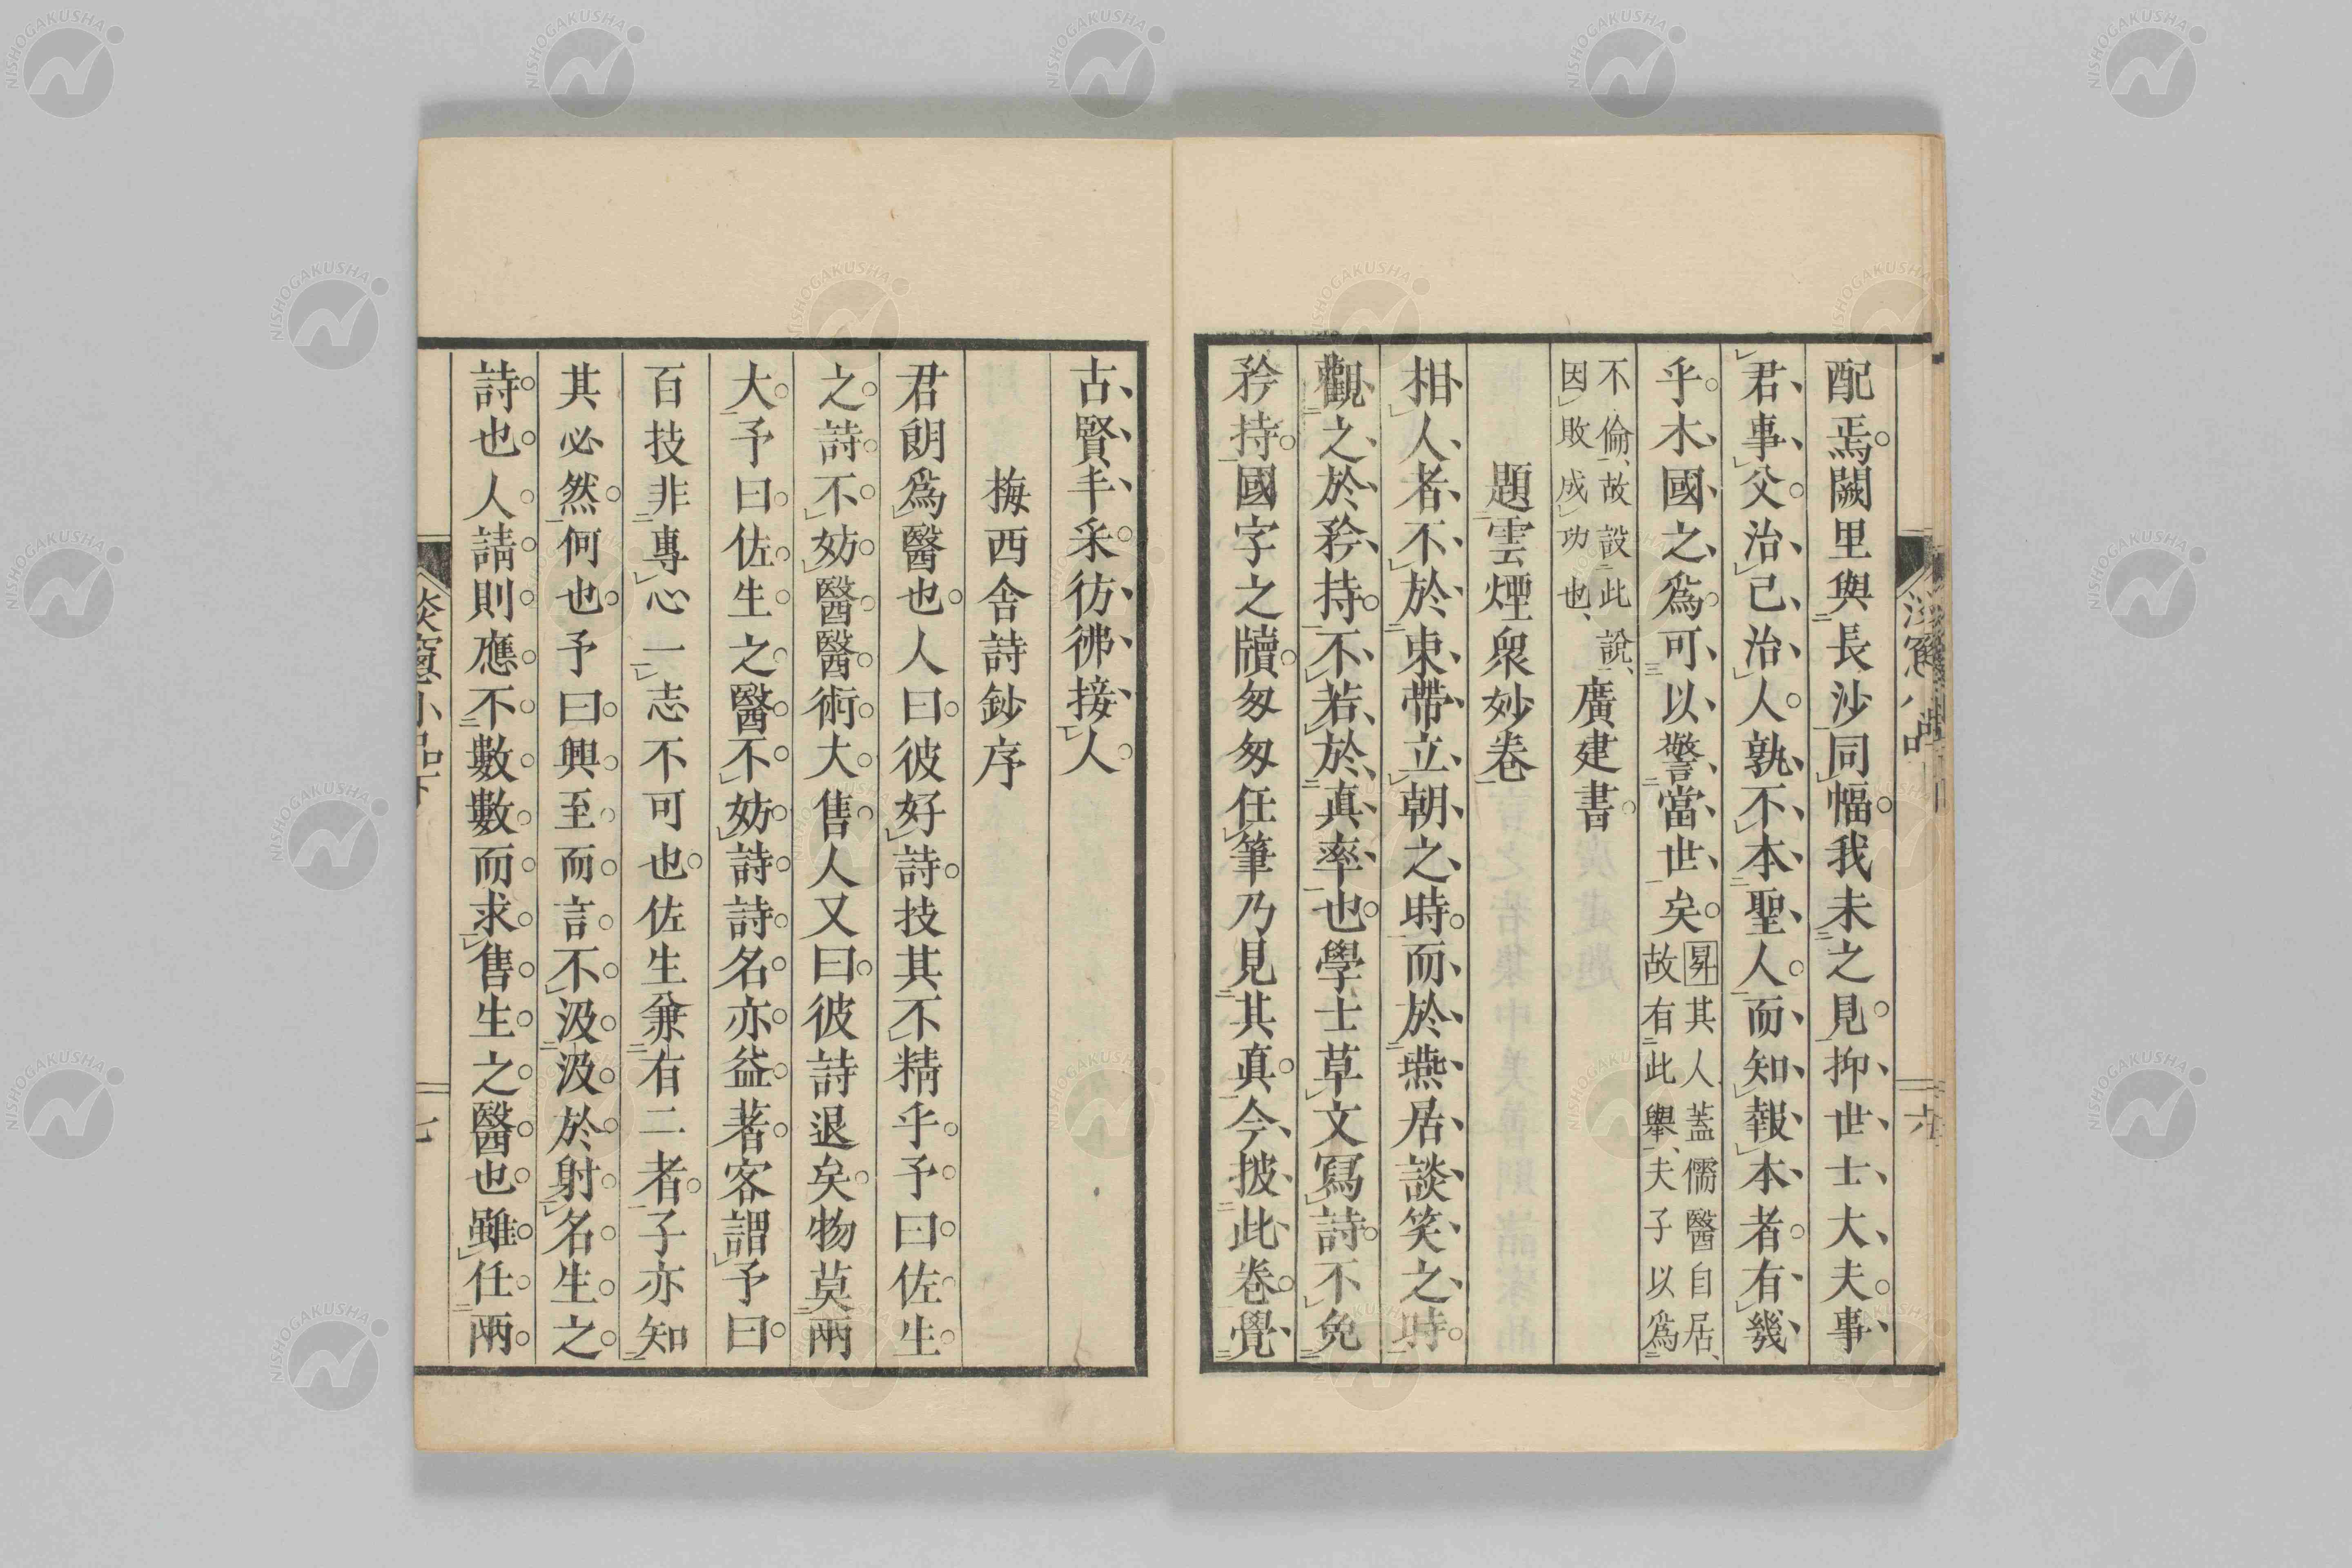 配焉闕里與長沙同幅我未之見抑世士大夫事
君事父治己治人孰不本聖人而知報本者有幾
乎木國之爲可以警當世矣
昇其人蓋儒醫自居
故有此擧夫子以爲
不倫故設此說
因敗成功也
廣建書
題雲煙衆妙卷
相人者不於束帶立朝之時而於燕居談笑之時
觀之於矜持不若於真率也學士草文寫詩不免
矜持國字之牘匆匆任筆乃見其真今披此卷覺
古賢丰采彷彿接人
梅西舍詩鈔序
君朗爲醫也人曰彼好詩技其不精乎予曰佐生
之詩不妨醫醫術大售人又曰彼詩退矣物莫兩
大予曰佐生之醫不妨詩詩名亦益著客謂予曰
百技非專心一志不可也佐生兼有二者子亦知
其必然何也予曰興至而言不汲汲於射名生之
詩也人請則應不數數而求售生之醫也雖任兩
七
六
NISHOGAKUSHA